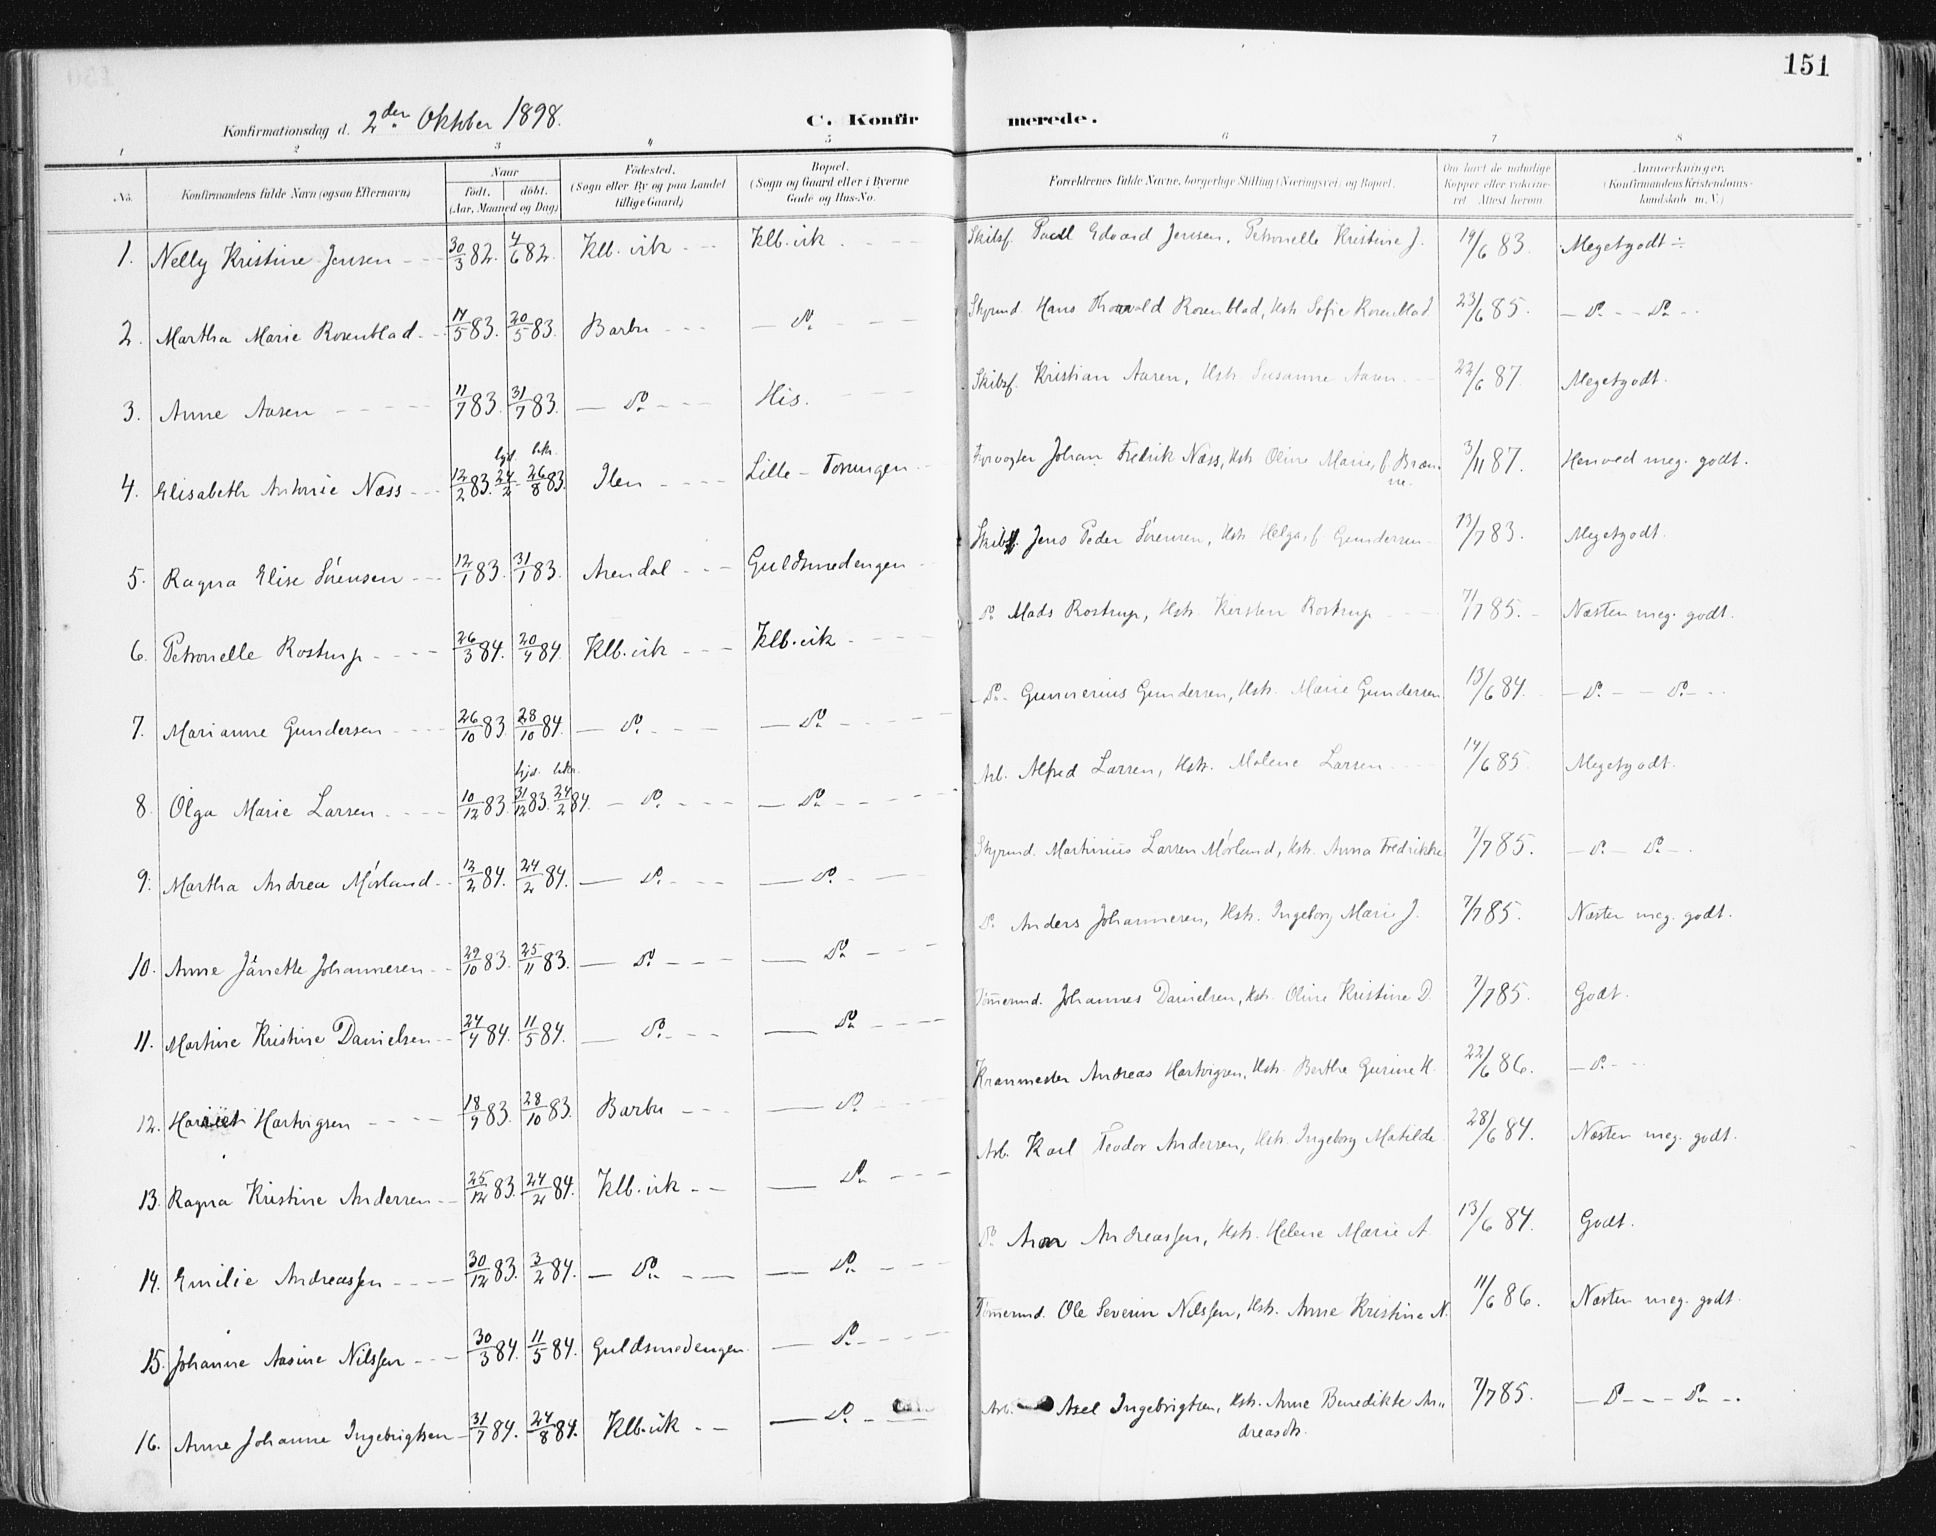 151
Konfirmationsdag d. 2den Oktober 1898.
C. Konfirmerede.
1 2 3 4 5 6 7 8
No. Konfirmandens fulde Navn (ogsaa Efternavn) Naar født, døbt. (Aar, Maaned og Dag) Fødested. (Sogn eller By og paa Landet tillige Gaard) Bopæl. (Sogn og Gaard eller i Byerne Gade og Hus-No. Forældrenes fulde Navne, borgerlige Stilling (Næringsvei) og Bopæl. Om havt de naturlige Kopper eller vakcineret. Attest herom Anmerkninger. (Konfirmandens Kristendomskundskab m. V.)
1. Nelly Kristine Jensen 30/3 82. 4/6 82. Klb.vik Klb.vik Skibsf. Poull Edvard Jensen, Petronelle Kristine J. 19/6 83. Megetgodt ÷
2. Martha Marie Rosenblad 17/5 83. 20/5 83. Barbu do Skyrmd. Hans Thorvald Rosenblad, Hstr. Sofie Rosenblad 23/6 85. do do
3. Anne Aasen 11/7 83. 31/7 83. do His. Skibsf. Kristian Aasen, Hstr. Susanne Aasen 22/6 87. Megetgodt.
4. Elisabeth Antonie Næss 12/2 83. hjd. 24/2 bekr. 26/8 83. Ilen Lille-Torungen Fyrvogter Johan Fredrik Næss, Hstr. Oline Marie, f. Brænne. 3/11 87. Henved meg. godt.
5. Ragna Elise Sörensen 12/1 83. 31/1 83. Arendal Guldsmedengen Skibsf. Jens Peder Sörensen, Hstr. Helga, f. Gundersen 13/7 83. Megetgodt.
6. Petronelle Rostrup 26/3 84. 20/4 84. Klb.vik Klb.vik do Mads Rostrup, Hstr. Kirsten Rostrup 7/7 85. Næsten meg. godt.
7. Marianne Gundersen 26/10 83. 28/10 84. do do do Gunnerius Gundersen, Hstr. Marie Gundersen 13/6 84. do do
8. Olga Marie Larsen 10/12 83. hjd. 31/12 83. bekr. 24/2 84. do do Arb. Alfred Larsen, Hstr. Molene Larsen 14/6 85. Megetgodt.
9. Martha Andrea Mörland 12/2 84. 24/2 84. do do Skyrmd. Martinius Larsen Mörland, Hstr. Anna Fredrikke 7/7 85. do do
10. Anne Janette Johannesen 29/10 83. 25/11 83. do do do Anders Johannesen, Hstr. Ingeborg Marie J. 7/7 85. Næsten meg. godt.
11. Martine Kristine Danielsen 24/4 84. 11/5 84. do do Tömermd. Johannes Danielsen, Hstr. Oline Kristine D. 7/7 85. Godt.
12. Harriet Hartvigsen 18/9 83. 28/10 83. Barbu do Kranmester Andreas Hartvigsen, Hstr. Berthe Gurine H. 22/6 86. do
13. Ragna Kristine Andersen 25/12 83. 24/2 84. Klb.vik do Arb. Karl Teodor Andersen, Hstr. Ingeborg Matilde 28/6 84. Næsten meg. godt.
14. Emilie Andreassen 30/12 83. 3/2 84. do do do Aron Andreassen, Hstr. Helene Marie A. 13/6 84. Godt.
15. Johanne Aasine Nilssen 30/3 84. 11/5 84. Guldsmedengen do Tömermd. Ole Severin Nilssen, Hstr. Anne Kristine N. 11/6 86. Næsten meg. godt.
16. Anne Johanne Ingebrigtsen 31/7 84. 24/8 84. Klb.vik do Arb. Axel Ingebrigtsen, Hstr. Anne Benedikte Andreasdtr. 7/7 85. do do